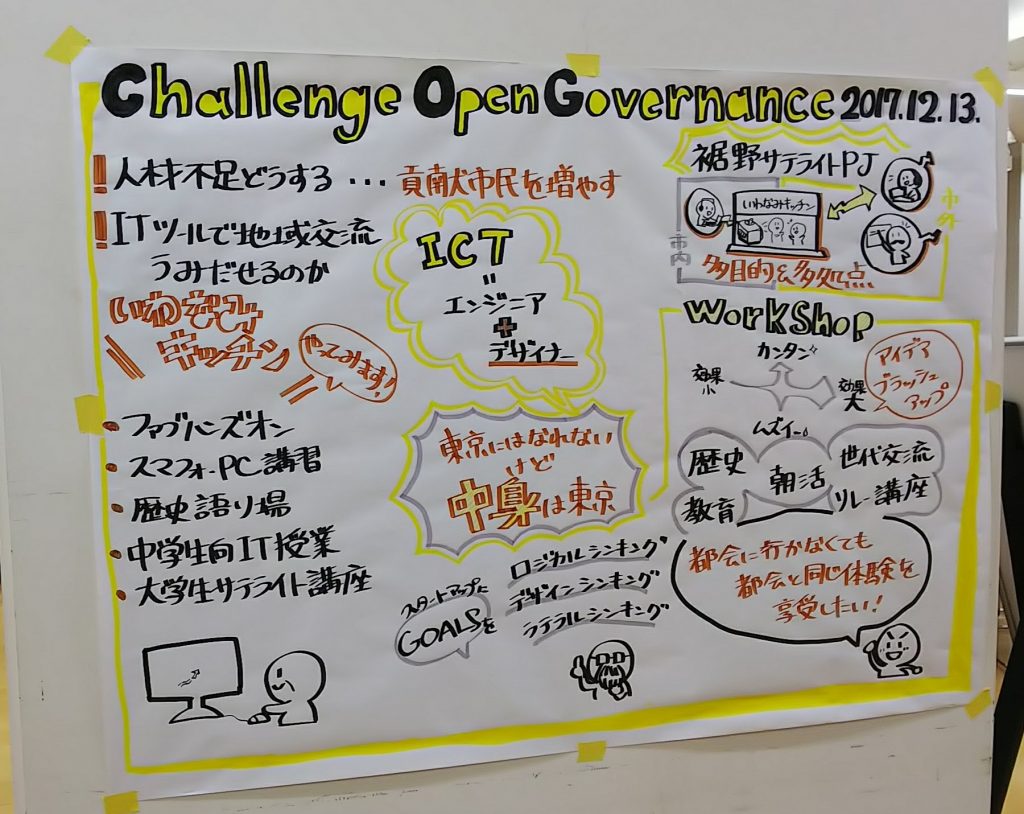 Challenge Open Governance 2017.12.13.
! 人材不足どうする … 貢献市民を増やす
! ITツールで地域交流
うみだせるのか
いわなみ
キッチン
やってみます!
・ファブハンズオン
・スマフォ・PC講習
・歴史語り場
・中学生向IT授業
・大学生サテライト講座
ICT
=
エンジニア
+
デザイナー
東京にはなれない
けど
中身は東京
スタートアップに
GOALSを
ロジカルシンキング
デザインシンキング
ラテラルシンキング
裾野サテライトPJ
いわなみキッチン
市内
市外
多目的&多拠点
WorkShop
カンタン
効果
小
効果
大
ムズイ〜。
アイデア
ブラッシュ
アップ
歴史
教育
朝活
世代交流
リレー講座
都会に行かなくても
都会と同じ体験を
享受したい!